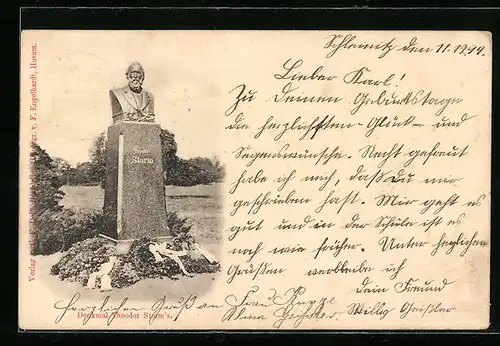 Schleinitz den 11.19.99.
Lieber Karl!
Zu Deinem Geburtstage
die herzlichsten Glück- und
Segenswünsche. Recht gefreut
habe ich mich, daß Du mir
geschrieben hast. Mir geht es
gut und in der Schule ist es
noch wie früher. Unter herzlichen
Grüßen verbleibe ich
dein Freund
Willy Geißler
herzlichen Gruß an Frau
Alma Geißler
Storm
Denkmal Theodor Storm's.
Verlag v. F. Engelhardt, Husum.